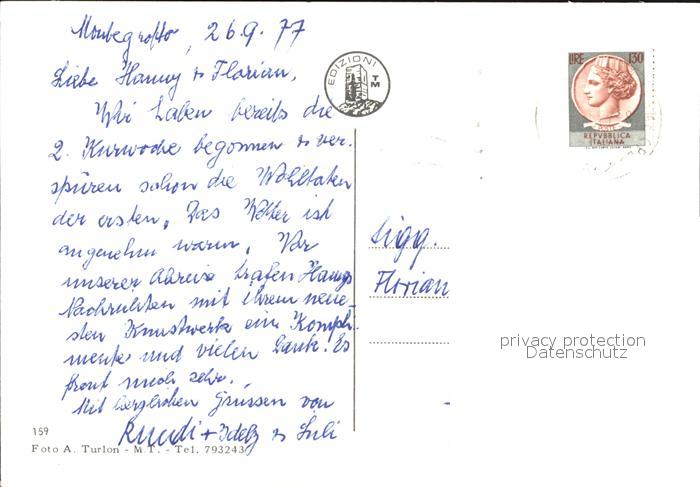 Montegrotto, 26.9.77
Liebe Hanny & Florian,
Wir haben bereits die
2. Kurwoche begonnen & ver-
spüren schon die Wohltaten
der ersten. Das Wetter ist
angenehm warm. Vor
unserer Abreise trafen Hannys
Nachrichten mit ihrem neue-
sten Kunstwerk ein. Kompli-
mente und vielen Dank. Es
freut mich sehr.
Mit herzlichen Grüssen von
Ruedi + & 
159
Foto A. Turlon - M.T. - Tel. 793243
EDIZIONI
TM
LIRE 130
POSTE
REPVBBLICA
ITALIANA
Sigg.
Florian
privacy protection
Datenschutz